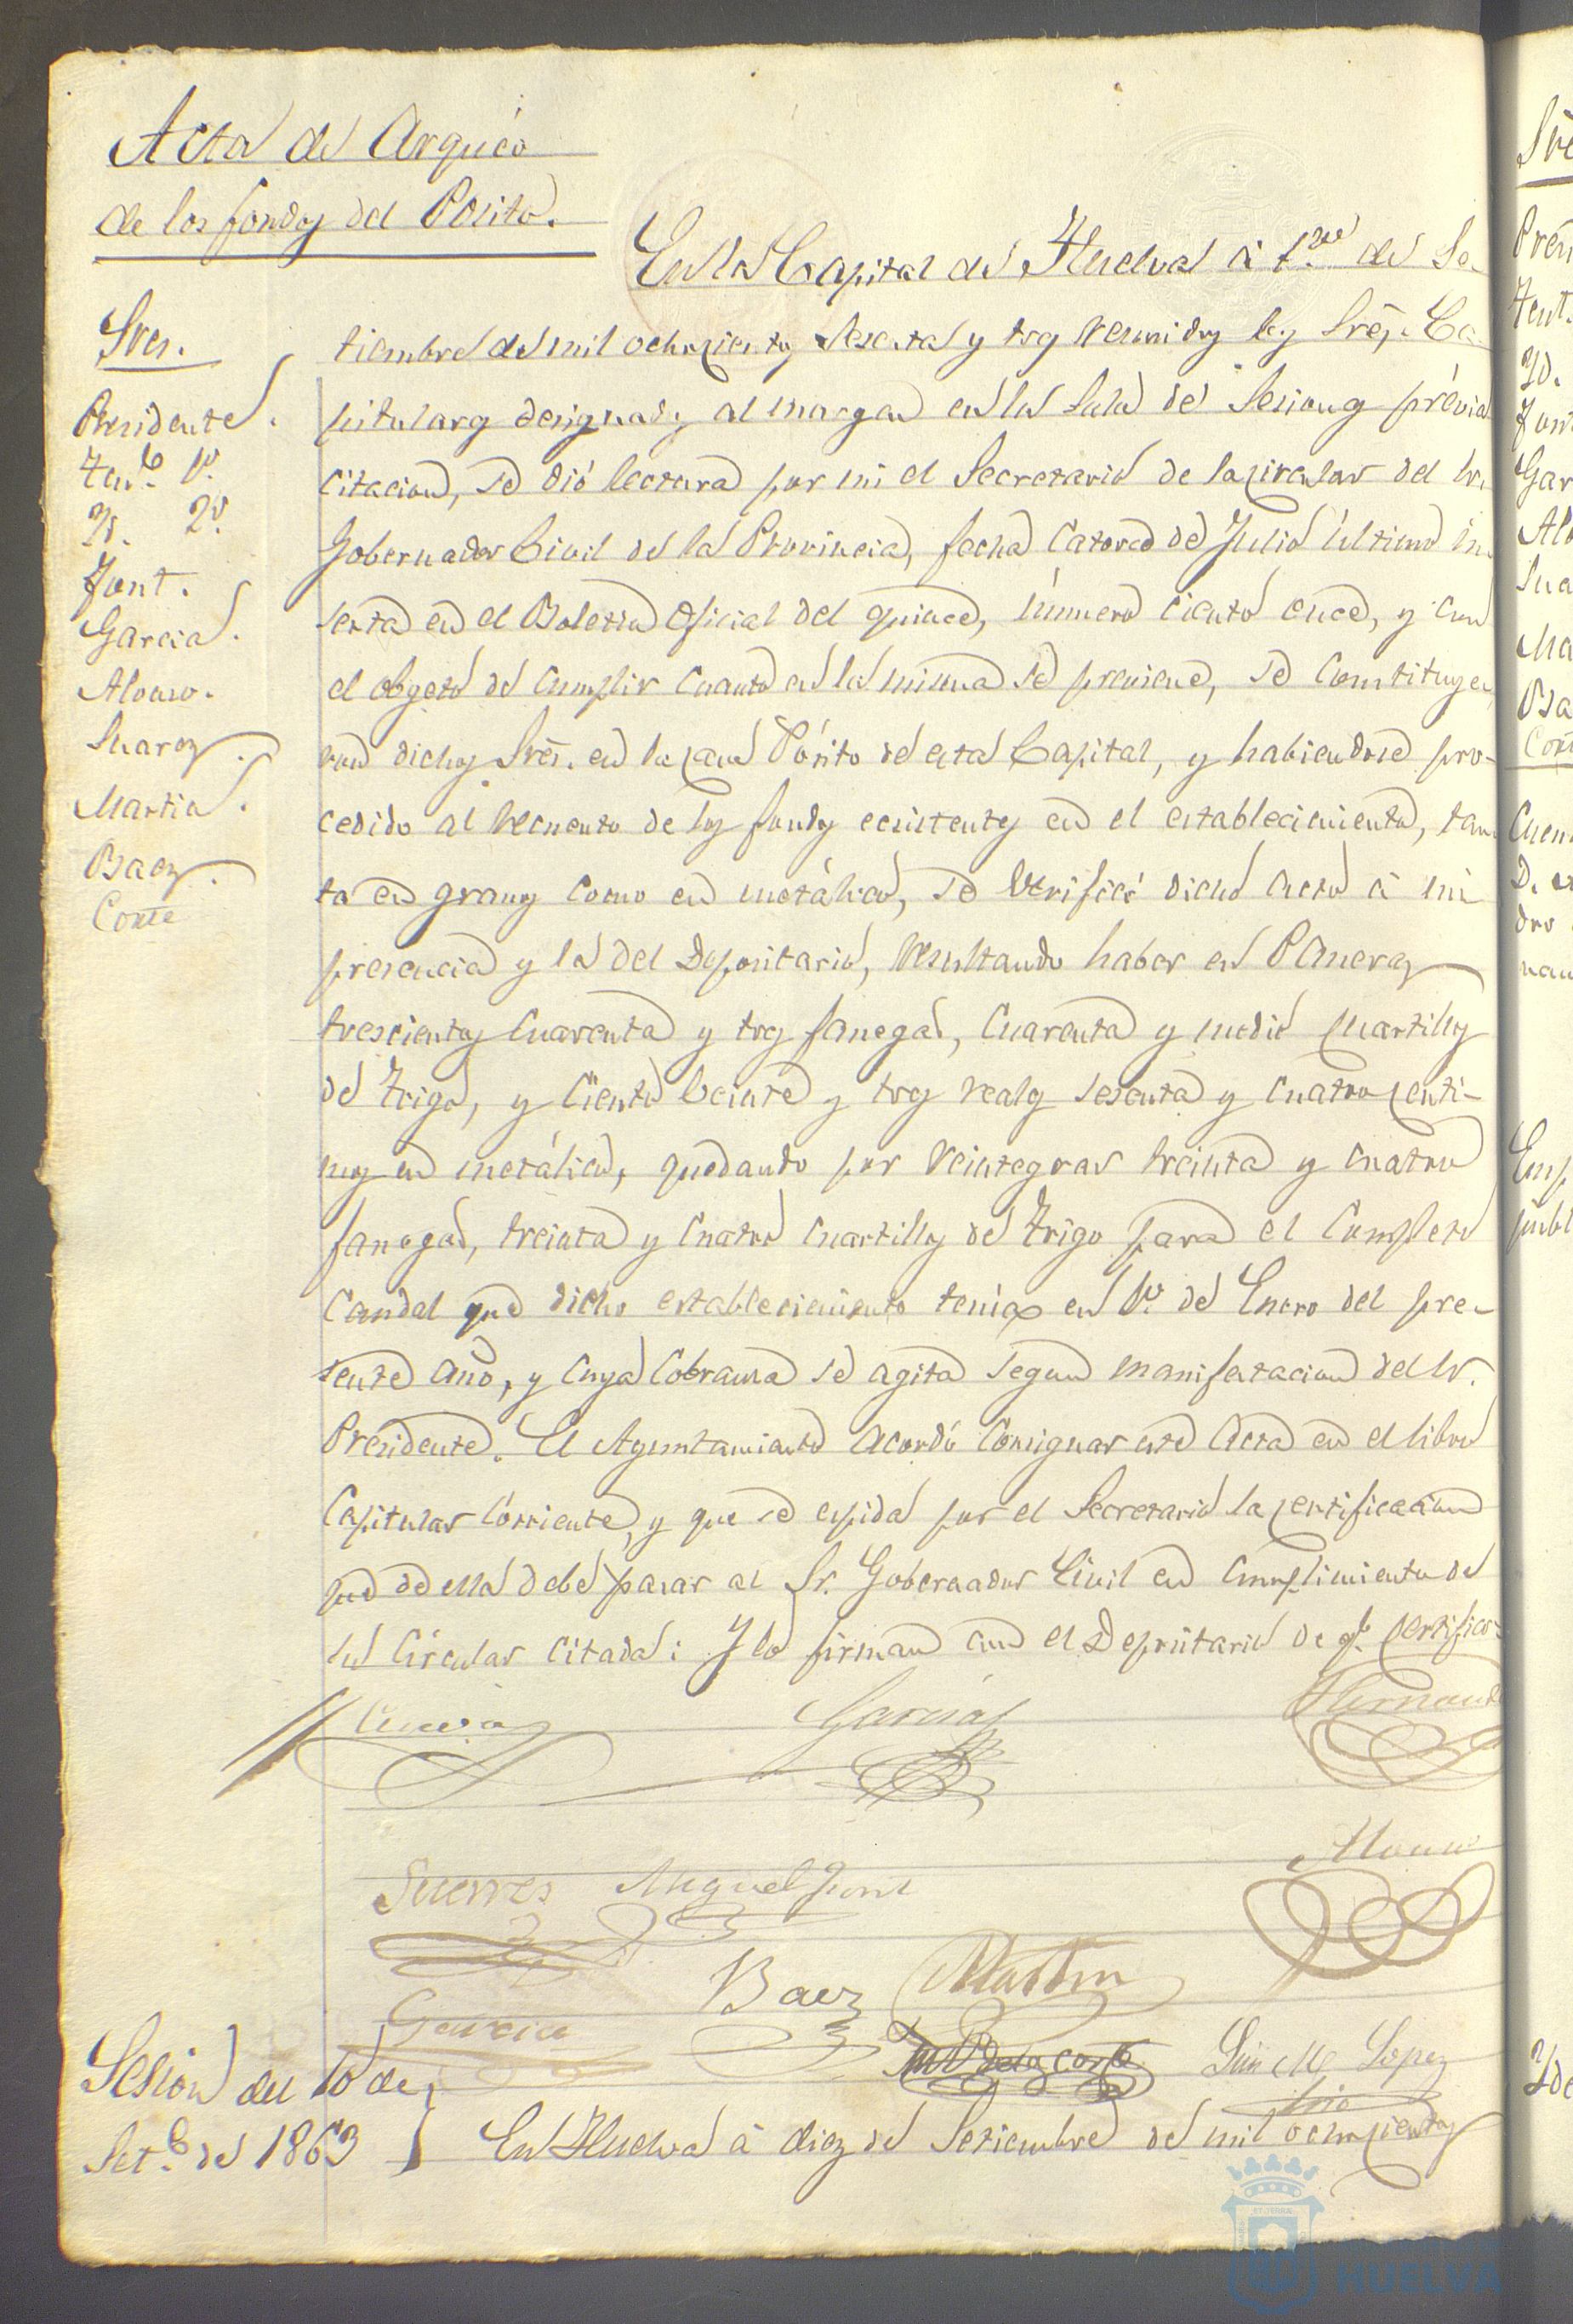 Acta de Arquéo
de los fondos del Pósito.
Sres.
Presidente.
Ten.te 1º.
Yd. 2º.
Font.
Garcia.
Alonso.
Suarez.
Martin.
Baez.
Conte
En la Capital de Huelva á 1.º de Se-
tiembre de mil ochocientos sesenta y tres reunidos los Sres. Ca-
pitulares designados al margen en la Sala de Sesiones prévia
citacion, se dió lectura por mi el Secretario de la circular del Sr.
Gobernador Civil de la Provincia, fecha catorce de Julio último in-
serta en el Boletin Oficial del quince, número ciento once, y con
el objeto de cumplir cuanto en la misma se previene, se constituye-
ron dichos Sres. en la casa Pósito de esta Capital, y habiendose pro-
cedido al recuento de los fondos ecsistentes en el establecimiento, tan-
to en granos como en metálico, se verificó dicho acto á mi
presencia y la del Depositario, resultando haber en Paneras
trescientas cuarenta y tres fanegas, cuarenta y medio cuartillos
de trigo, y ciento veinte y tres reales sesenta y cuatro centi-
mos en metálico, quedando por reintegrar treinta y cuatro
fanegas, treinta y cuatro cuartillos de trigo para el completo
caudal que dicho establecimiento tenia en 1º de Enero del pre-
sente año, y cuya cobranza se agita segun manifestacion del Sr.
Presidente. El Ayuntamiento acordó consignar este acta en el libro
Capitular corriente, y que se espida por el Secretario la certificacion
que de ella debe pasar al Sr. Gobernador Civil en cumplimiento de
su circular citada: Y lo firman con el Depositario de qe. certifico=
Garcia
Hernand
Suarez Miguel Font
Alonso
Garcia Baez Martin
de la Corte Lopez
Srio
Sesion del 10 de
Set.e de 1863 } En Huelva á diez de Setiembre de mil ochocientos
HUELVA